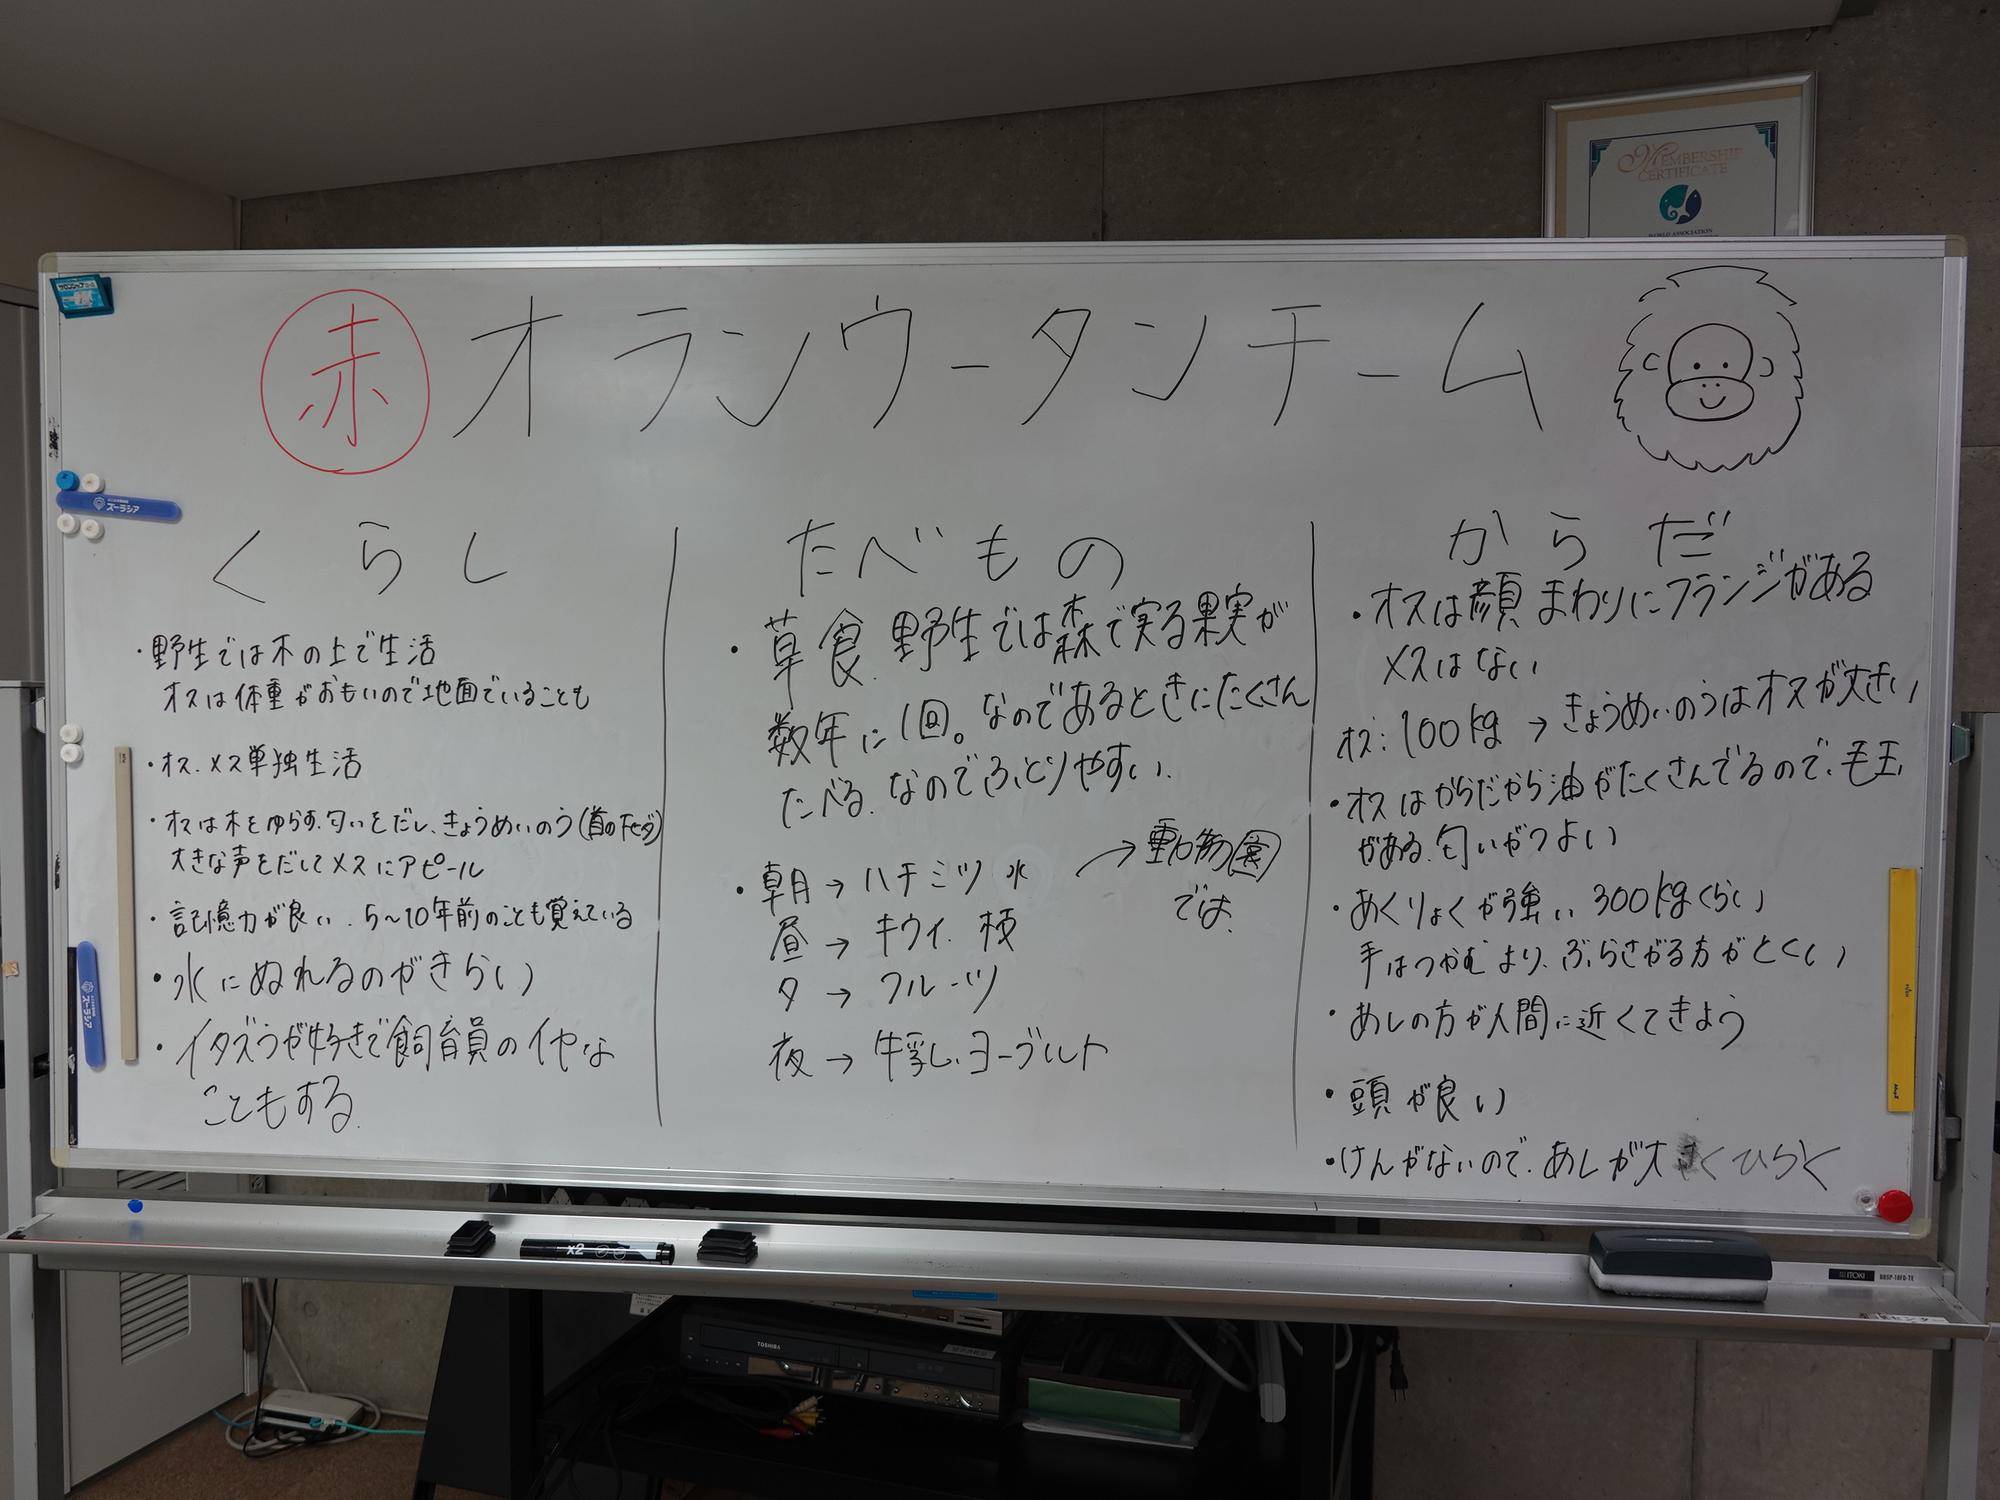 MEMBERSHIP
CERTIFICATE
WORLD ASSOCIATION
赤 オランウータンチーム
ズーラシア
くらし
・野生では木の上で生活
オスは体重がおもいので地面でいることも
・オス、メス単独生活
・オスは木をゆらす、匂いをだし、きょうめいのう(首の下せだ)
大きな声をだしてメスにアピール
・記憶力が良い、5〜10年前のことも覚えている
・水にぬれるのがきらい
・イタズラが好きで飼育員のイヤな
こともする。
ズーラシア
たべもの
・草食、野生では森で実る果実が
数年に1回。なのであるときにたくさん
たべる。なのでふとりやすい、
→動物園
では、
・朝→ハチミツ水
昼→キウイ、枝
夕→フルーツ
夜→牛乳、ヨーグルト
からだ
・オスは顔まわりにフランジがある
メスはない
オス:100kg→きょうめいのうはオスが大きい
・オスはからだから油がたくさんでるので、毛玉
がある、匂いがつよい
・あくりょくが強い 300kgくらい
手はつかむより、ぶらさがる方がとくい
・あしの方が人間に近くてきよう
・頭が良い
・けんがないので、あしが大きくひらく
x2
ITOKI
TOSHIBA